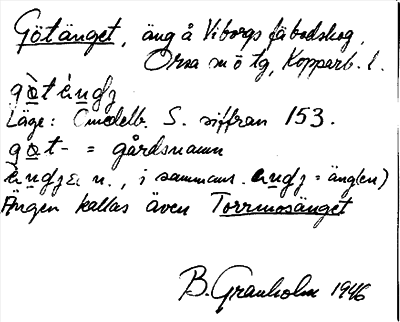 Götänget, äng å Viborgs fäbodskog,
Orsa sn ö tg, Kopparb. l.
gòt ǽndʒ
Läge: Omedelb. S. siffran 153.
got- = gårdsnamn
ǽndʒɛ n., i sammans. ændʒ = äng(en)
Ängen kallas även Torrmosänget
B. Granholm 1946